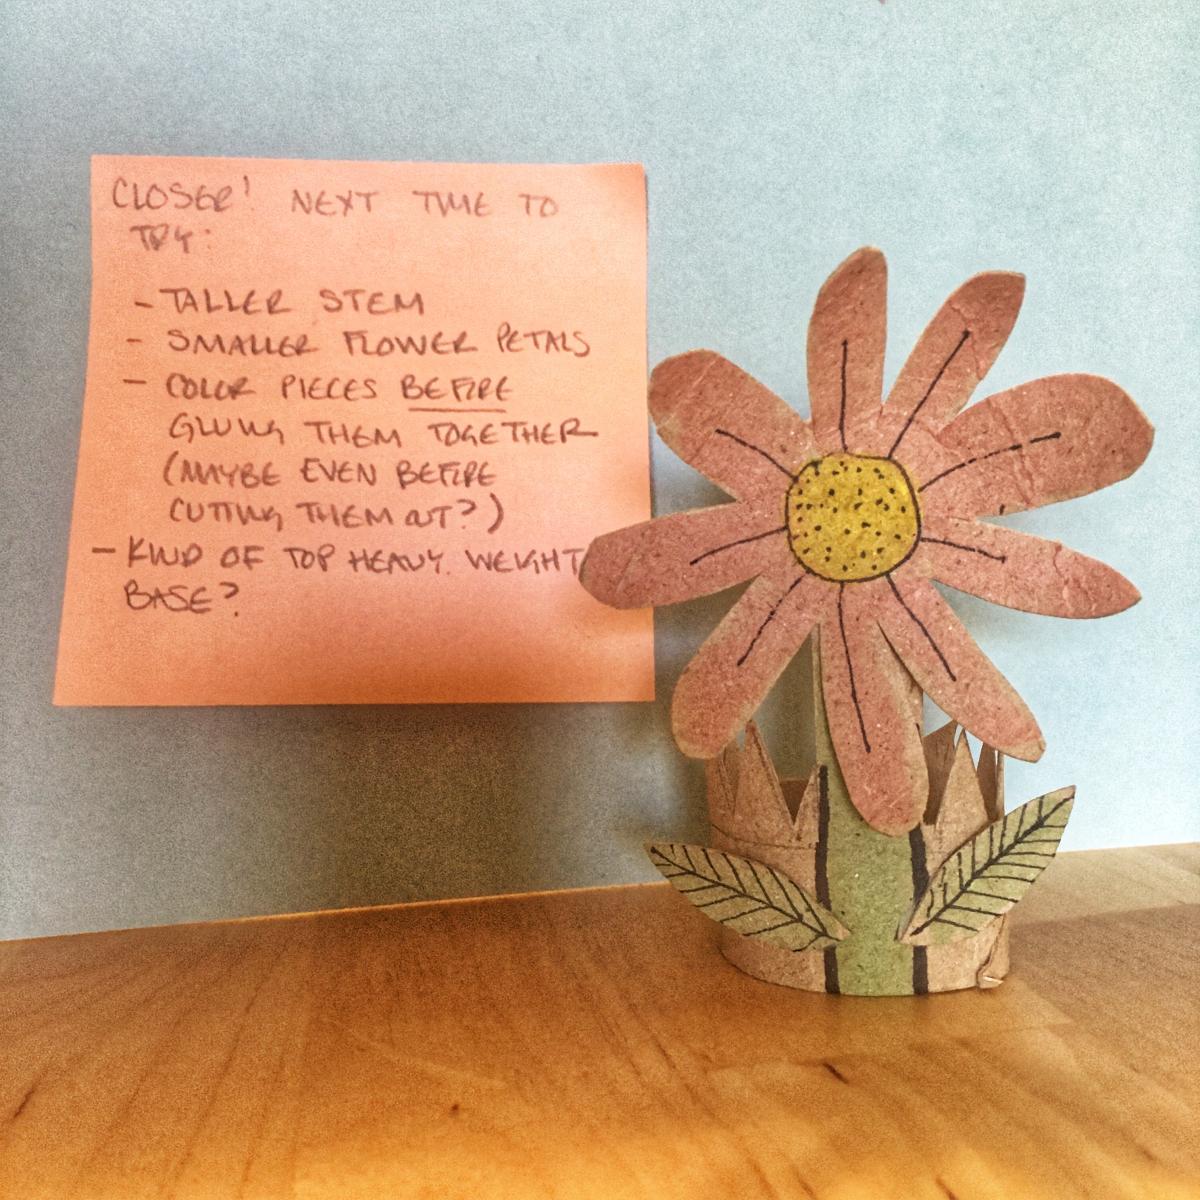 CLOSER! NEXT TIME TO
TRY:
- TALLER STEM
- SMALLER FLOWER PETALS
- COLOR PIECES BEFORE
GLUING THEM TOGETHER
(MAYBE EVEN BEFORE
CUTTING THEM OUT?)
- KIND OF TOP HEAVY. WEIGHT
BASE?